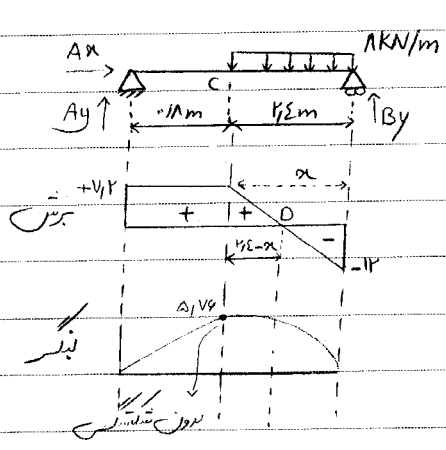 Ax ۸KN/m
C
Ay ۰/۸m ۲,۴m By
x
+۷,۲
برش + + D -
۲,۴-x
-۱۲
۵,۷۶
لنگر
بدون شکستگی